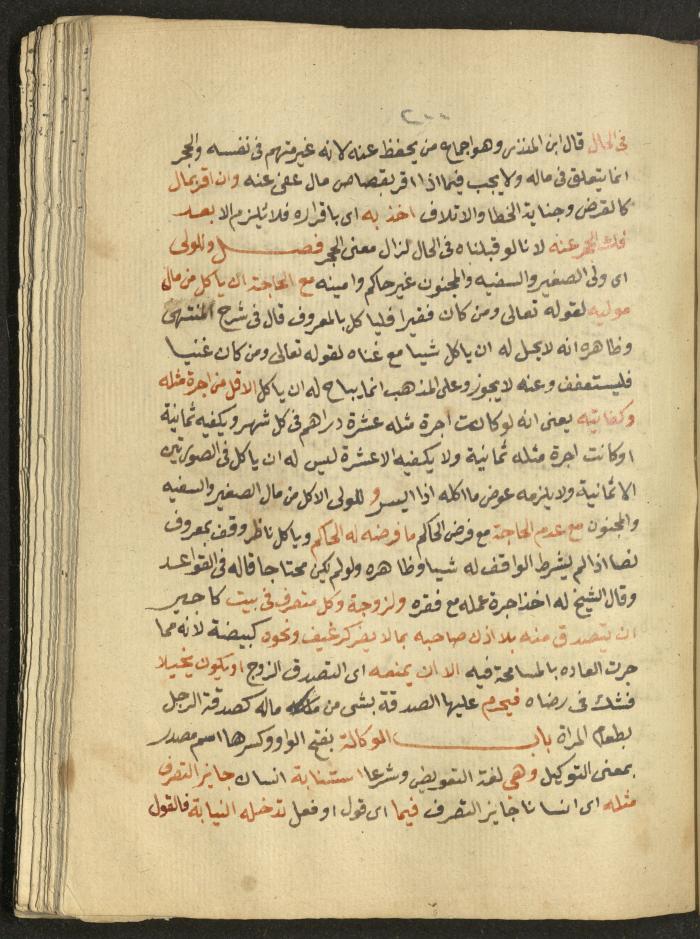 ٢٠٠
في الحال قال ابن المنذر وهو اجماع من يحفظ عنه لانه غير متهم في نفسه والحجر
انما يتعلق في ماله ولا يجب فيما اذا اقر بقصاص مال عفى عنه وان اقر بمال
كالقرض وجناية الخطا والاتلاف اخذ به اى باقراره فلا يلزم الا بعد
فك الحجر عنه لانا لو قبلناه في الحال لزال معنى الحجر فصل وللولى
اى ولى الصغير والسفيه والمجنون غير حاكم وامينه مع الحاجة ان ياكل من مال
موليه لقوله تعالى ومن كان فقيرا فلياكل بالمعروف قال في شرح المنتهى
وظاهره انه لا يحل له ان ياكل شيا مع غناه لقوله تعالى ومن كان غنيا
فليستعفف وعنه لا يجوز وعلى المذهب انما يباح له ان ياكل الاقل من اجرة مثله
وكفايته يعنى انه لو كانت اجرة مثله عشرة دراهم في كل شهر ويكفيه ثمانية
او كانت اجرة مثله ثمانية ولا يكفيه الا عشرة ليس له ان ياكل في الصورتين
الا ثمانية ولا يلزمه عوض ما اكله اذا ايسر و للولى الاكل من مال الصغير والسفيه
والمجنون مع عدم الحاجة مع فرض الحاكم ما فرضه له الحاكم وياكل ناظر وقف بمعروف
نصا اذا لم يشرط الواقف له شيا وظاهره ولو لم يكن محتاجا قاله في القواعد
وقال الشيخ له اخذ اجرة عمله مع فقره ولزوجة وكل متصرف في بيت كاجير
ان يتصدق منه بلا اذن صاحبه بما لا يضر كرغيف ونحوه كبيضة لانه مما
جرت العاده بالمسامحة فيه الا ان يمنعه اى التصدق الزوج او يكون بخيلا
فتشك في رضاه فيحرم عليها الصدقة بشى من ماله كصدقة الرجل
بطعام المراة باب الوكالة بفتح الواو وكسرها اسم مصدر
بمعنى التوكيل وهى لغة التفويض وشرعا استنابة انسان جايز التصرف
مثله اى انسانا جايز التصرف فيما اى قول او فعل تدخله النيابة فالقول